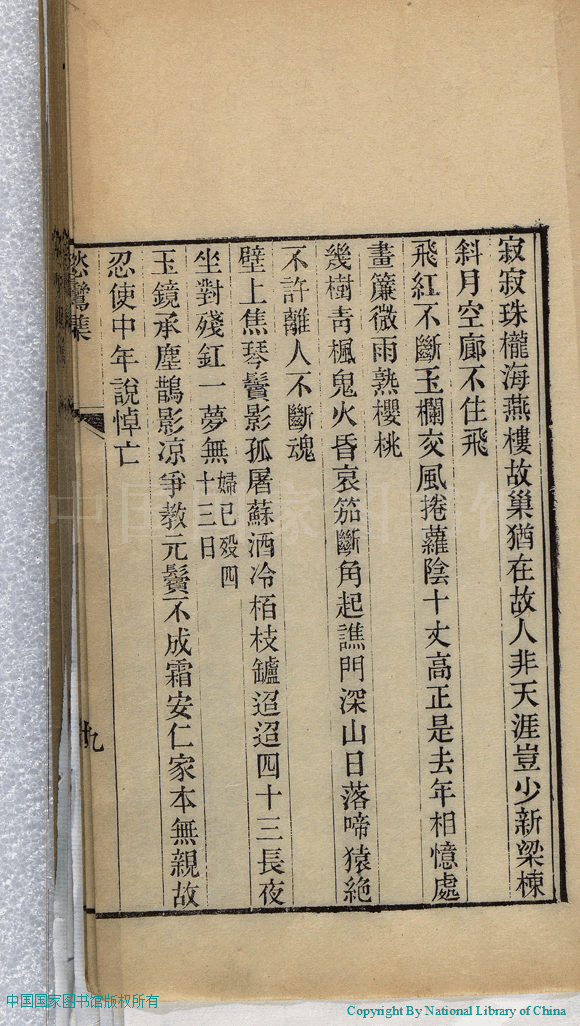 寂寂珠櫳海燕樓故巢猶在故人非天涯豈少新梁棟
斜月空廊不住飛
飛紅不斷玉欄夾風捲蘿陰十丈高正是去年相憶處
畫簾微雨熟櫻桃
幾樹青楓鬼火昏哀笳斷角起譙門深山日落啼猿絶
不許離人不斷魂
壁上焦琴鬢影孤屠蘇酒冷栢枝鑪迢迢四十三長夜
坐對殘釭一夢無婦已殁四十三日
玉鏡承塵鵲影凉爭教元鬢不成霜安仁家本無親故
忍使中年說悼亡
愁鸞集
十九
中国国家图书馆
中国国家图书馆版权所有
Copyright By National Library of China